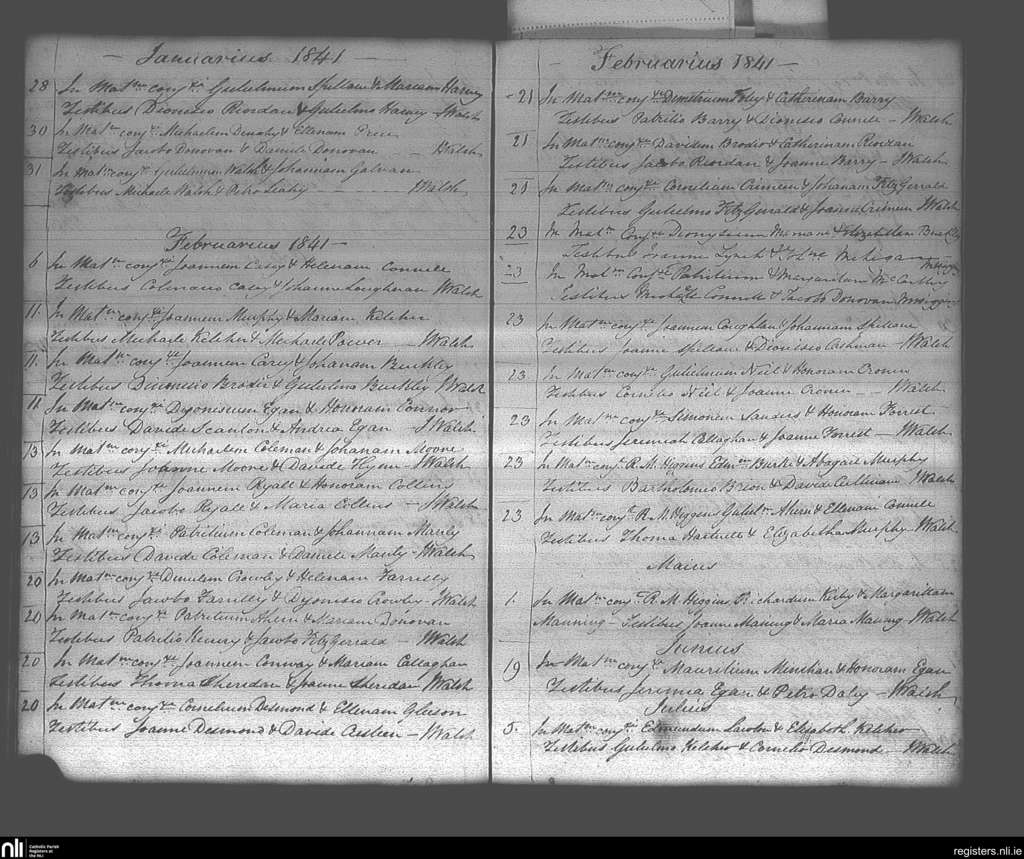 Januarius 1841
28 In Matm conxi Gulielmum Spillane & Mariam Harvey
Testibus Dionisio Riordan & Gulielmo Harvey - JWalsh
30 In Matm conxi Michaelem Denahy & Ellenam
Testibus Jacobo Donovan & Daniele Donovan - JWalsh
31 In Matm conxi Gulielmum Walsh & Johannam Galvan
Testibus Michaele Walsh & Petro Leahy JWalsh
Februarius 1841 -
6 In Matm conxi Joannem Casey & Helenam Connell
Testibus Colemano Casey & Johanna Loughnan Walsh
11 In Matm conxi Joannem Murphy & Mariam Keleher
Testibus Michaele Keleher & Michaele Power - JWalsh
11 In Matm conxi Joannem Carey & Johanam Buckley
Testibus Dionisio Brodie & Gulielmo Buckley JWalsh
11 In Matm conxi Dyonisium Egan & Honoram Connor
Testibus Davide Scanlon & Andrea Egan - JWalsh
13 In Matm conxi Michaelem Coleman & Johanam Moore
Testibus Joanne Moore & Davide Flynn - JWalsh
13 In Matm conxi Joannem Ryall & Honoram Collins
Testibus Jacobo Ryall & Maria Collins - JWalsh
13 In Matm conxi Patritium Coleman & Johannam Manly
Testibus Davide Coleman & Daniele Manly - JWalsh
20 In Matm conxi Danielem Crowley & Helenam Farrelly
Testibus Jacobo Farrelly & Dyonisio Crowley - JWalsh
20 In Matm conxi Patritium Ahern & Mariam Donovan
Testibus Patritio & Jacobo FitzGerrald - JWalsh
20 In Matm conxi Joannem Conway & Mariam Callaghan
Testibus Thoma Sheridan & Joanne Sheridan JWalsh
20 In Matm conxi Cornelium Desmond & Ellenam Gleeson
Testibus Joanne Desmond & Davide - JWalsh
- Februarius 1841 -
21 In Matm conxi Demetrium Foley & Catherinam Barry
Testibus Patritio Barry & Dionisio Connell - JWalsh
21 In Matm conxi Davidem Brodie & Catherinam Riordan
Testibus Jacobo Riordan & Joanne Barry - JWalsh
21 In Matm conxi Cornelium Crimeen & Johanam FitzGerrald
Testibus Gulielmo FitzGerrald & Joanne Crimeen JWalsh
23 In Matm Conxi Dionysium & Elizabetham Buckley
Testibus Joanne Lynch & Mehigan
23 In Matm Conxi Patritium & Margaritam McCarthy
Testibus Michale Connell & Jacobo Donovan
23 In Matm conxi Joannem Coughlan & Johannam Spillane
Testibus Joanne Spillane & Dionisio - JWalsh
23 In Matm conxi Gulielmum Neil & Honoram Cronin
Testibus Cornelio Neil & Joanne Cronin - Walsh
23 In Matm conxi Simonem Sanders & Honoram Forrest
Testibus Jeremiah Callaghan & Joanne Forrest - JWalsh
23 In Matm conxt R. M. Higgins Edmm Burke & Abagail Murphy
Testibus Bartholomeo Breen & Davide JWalsh
23 In Matm conxt R. M. Higgins Gulielm Ahern & Ellenam Connell
Testibus Thoma Hartnett & Elizabetha Murphy - JWalsh
Maius
1. In Matm conxt R. M. Higgins Richardum Kirby & Margaritam
Manning - Testibus Joanne Manning & Maria Manning - JWalsh
Junius
19 In Matm conxi Mauritium & Honoram Egan
Testibus Jeremia Egan & Petro Daly - JWalsh
Julius
5. In Matm conxi Edmundum & Elizabeth Keleher
Testibus Gulielmo Keleher & Cornelio Desmond - JWalsh
nli
Catholic Parish
Registers at
the NLI
registers.nli.ie